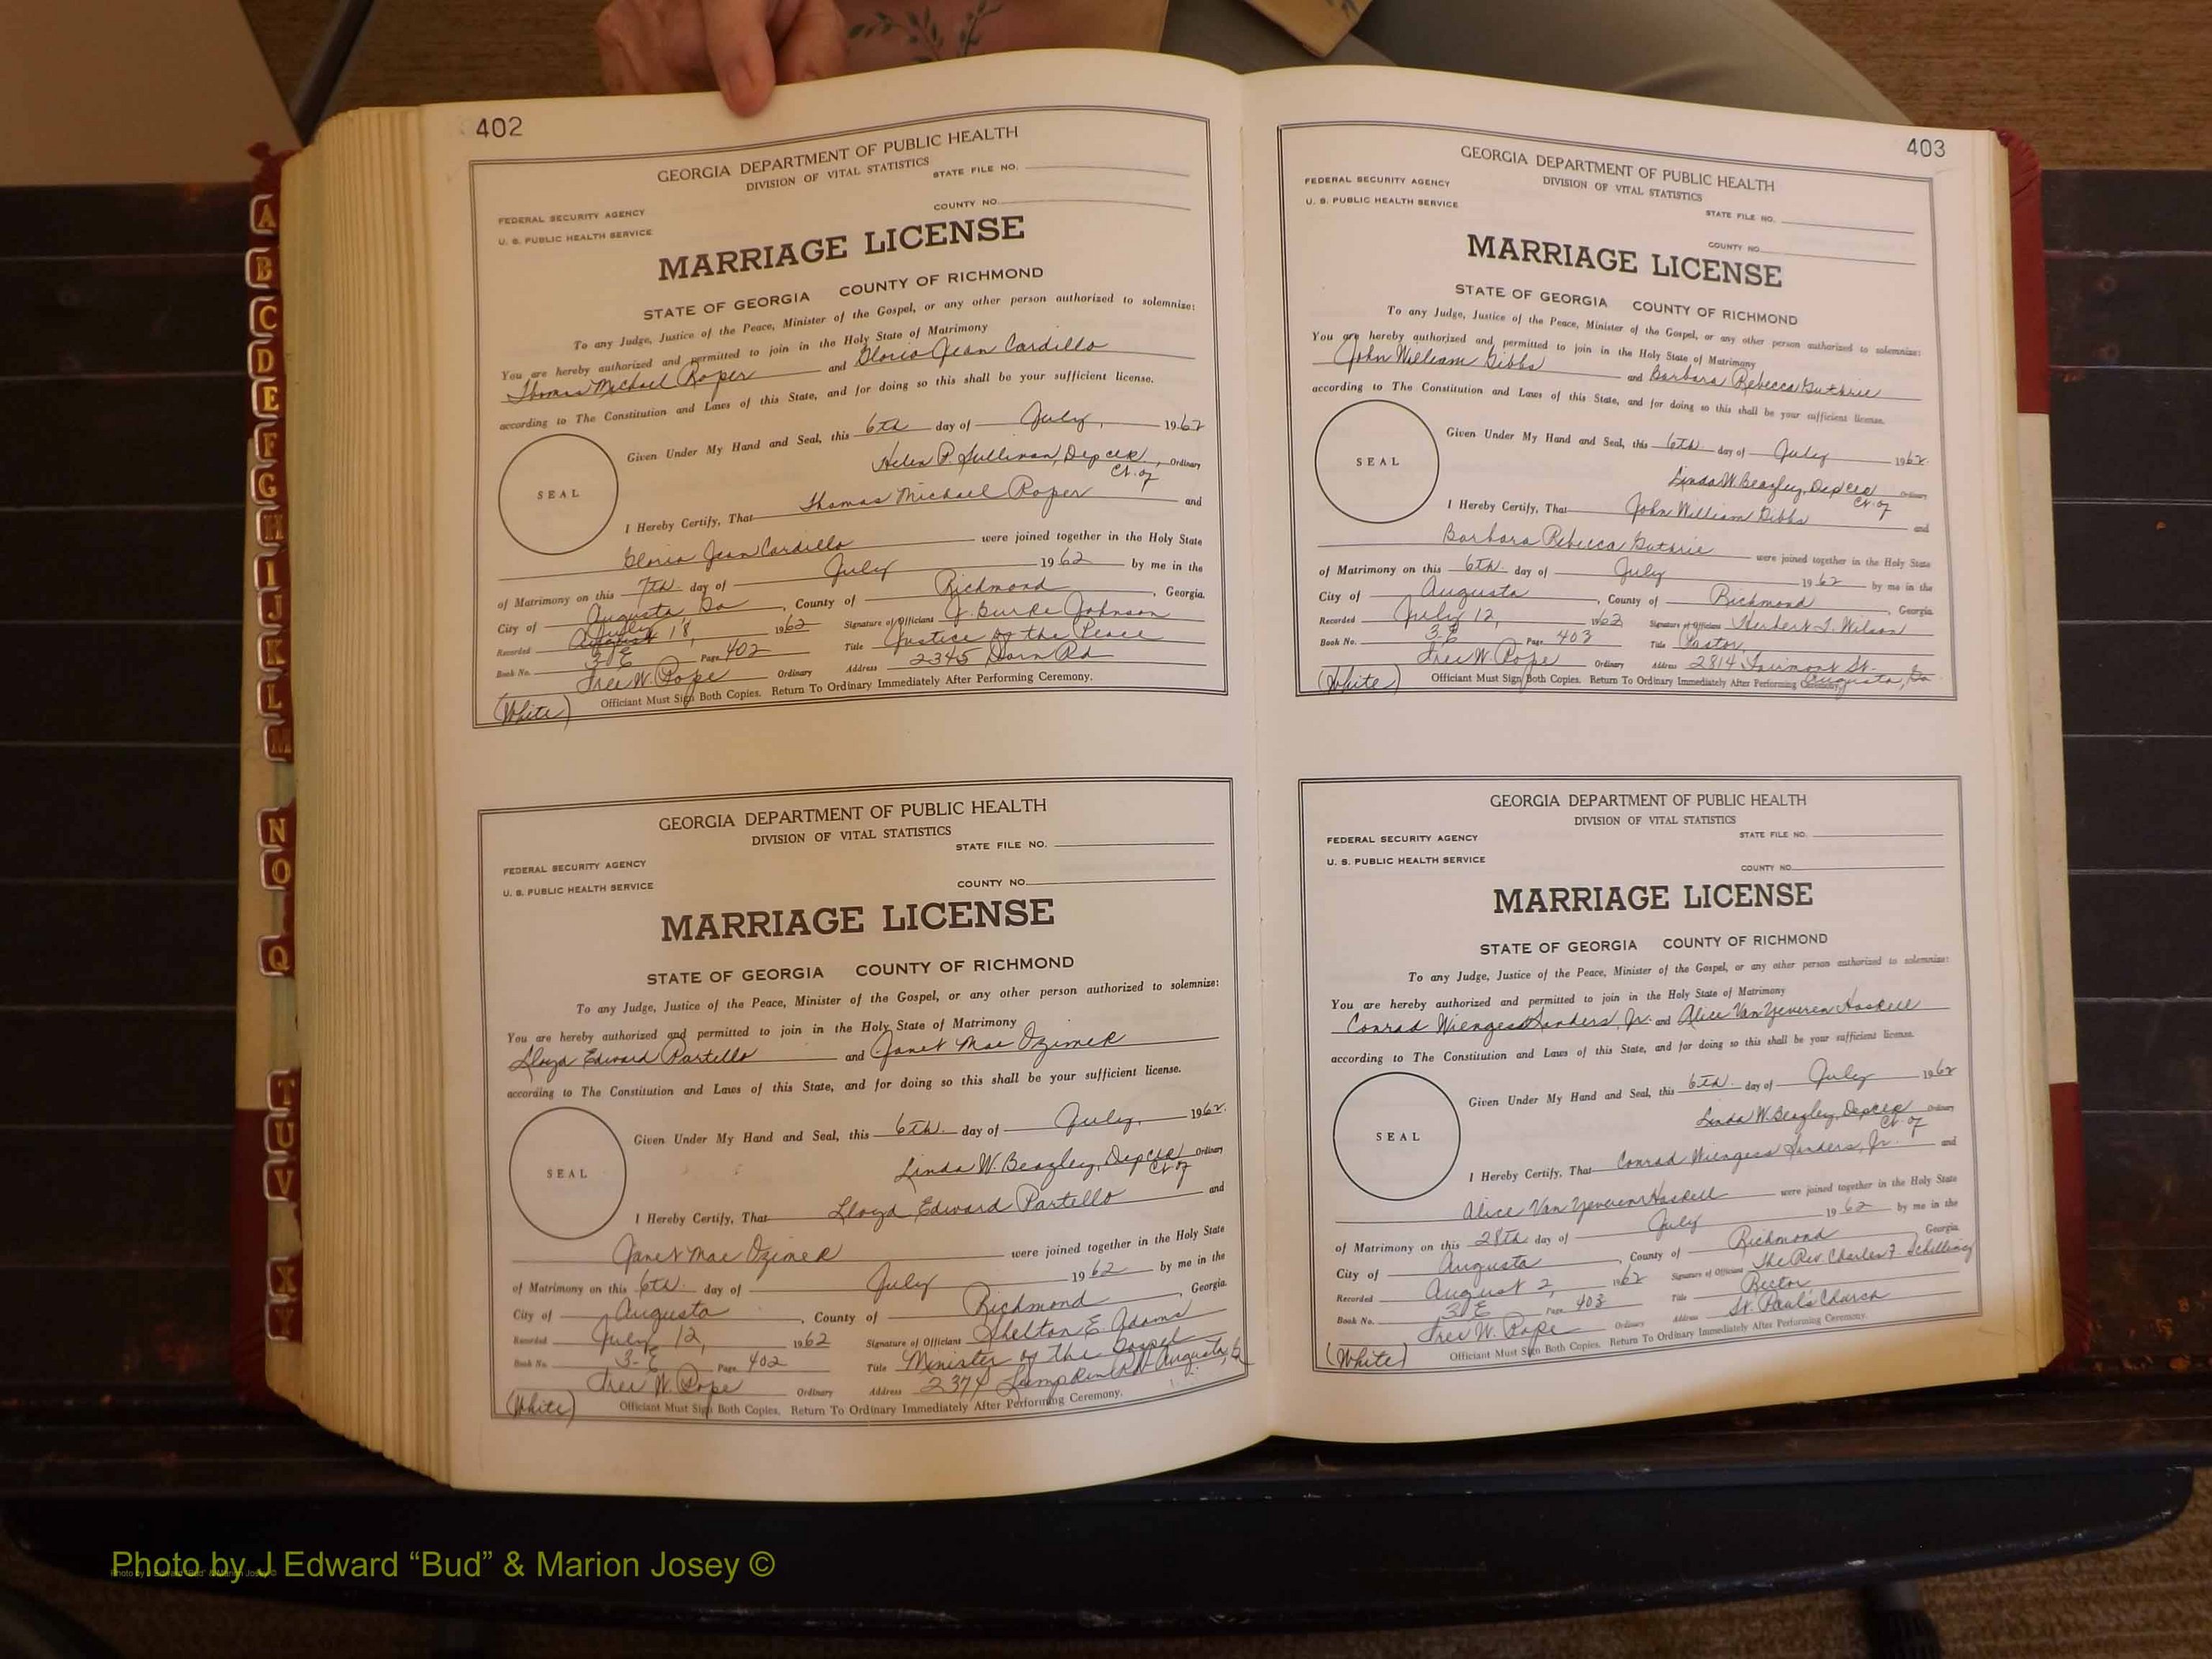 402
GEORGIA DEPARTMENT OF PUBLIC HEALTH
DIVISION OF VITAL STATISTICS
STATE FILE NO.
FEDERAL SECURITY AGENCY
COUNTY NO.
U. S. PUBLIC HEALTH SERVICE
MARRIAGE LICENSE
STATE OF GEORGIA COUNTY OF RICHMOND
To any Judge, Justice of the Peace, Minister of the Gospel, or any other person authorized to solemnize:
You are hereby authorized and permitted to join in the Holy State of Matrimony
Thomas Michael Roper and Gloria Jean Cardillo
according to The Constitution and Laws of this State, and for doing so this shall be your sufficient license.
Given Under My Hand and Seal, this 6th day of July, 1962
Helen P. Sullivan, Dep Clk, Ordinary
Ct. of
SEAL
I Hereby Certify, That Thomas Michael Roper and
Gloria Jean Cardillo were joined together in the Holy State
of Matrimony on this 7th day of July 1962 by me in the
City of Augusta, Ga, County of Richmond, Georgia.
Recorded July 18, 1962 Signature of Officiant J. Burke Johnson
Book No. 3 E Page 402 Title Justice of the Peace
Ordinary Address 2345 Dorn Rd
(White) Officiant Must Sign Both Copies. Return To Ordinary Immediately After Performing Ceremony.
GEORGIA DEPARTMENT OF PUBLIC HEALTH
DIVISION OF VITAL STATISTICS
STATE FILE NO.
FEDERAL SECURITY AGENCY
U. S. PUBLIC HEALTH SERVICE
COUNTY NO.
MARRIAGE LICENSE
STATE OF GEORGIA COUNTY OF RICHMOND
To any Judge, Justice of the Peace, Minister of the Gospel, or any other person authorized to solemnize:
You are hereby authorized and permitted to join in the Holy State of Matrimony
Lloyd Edward Partello and Janet Mae Ozimek
according to The Constitution and Laws of this State, and for doing so this shall be your sufficient license.
Given Under My Hand and Seal, this 6th day of July, 1962
Linda W. Beazley, Dep Clk Ordinary
Ct of
SEAL
I Hereby Certify, That Lloyd Edward Partello and
Janet Mae Ozimek were joined together in the Holy State
of Matrimony on this 6th day of July 1962 by me in the
City of Augusta, County of Richmond, Georgia.
Recorded July 12, 1962 Signature of Officiant Shelton E. Adams
Book No. 3-E Page 402 Title Minister of the Gospel
Ordinary Address 2374 Augusta, Ga
(White) Officiant Must Sign Both Copies. Return To Ordinary Immediately After Performing Ceremony.
403
GEORGIA DEPARTMENT OF PUBLIC HEALTH
DIVISION OF VITAL STATISTICS
FEDERAL SECURITY AGENCY
U. S. PUBLIC HEALTH SERVICE
STATE FILE NO.
COUNTY NO.
MARRIAGE LICENSE
STATE OF GEORGIA COUNTY OF RICHMOND
To any Judge, Justice of the Peace, Minister of the Gospel, or any other person authorized to solemnize:
You are hereby authorized and permitted to join in the Holy State of Matrimony
John William Gibbs and Barbara Rebecca Guthrie
according to The Constitution and Laws of this State, and for doing so this shall be your sufficient license.
Given Under My Hand and Seal, this 6th day of July 1962
Linda W. Beazley, Dep Clk Ordinary
Ct. of
SEAL
I Hereby Certify, That John William Gibbs and
Barbara Rebecca Guthrie were joined together in the Holy State
of Matrimony on this 6th day of July 1962 by me in the
City of Augusta, County of Richmond, Georgia.
Recorded July 12, 1962 Signature of Officiant Herbert J. Wilson
Book No. 3-E Page 403 Title Pastor
Ordinary Address 2814 Fairmont St.
Augusta, Ga
(White) Officiant Must Sign Both Copies. Return To Ordinary Immediately After Performing Ceremony.
GEORGIA DEPARTMENT OF PUBLIC HEALTH
DIVISION OF VITAL STATISTICS
STATE FILE NO.
FEDERAL SECURITY AGENCY
U. S. PUBLIC HEALTH SERVICE
COUNTY NO.
MARRIAGE LICENSE
STATE OF GEORGIA COUNTY OF RICHMOND
To any Judge, Justice of the Peace, Minister of the Gospel, or any other person authorized to solemnize:
You are hereby authorized and permitted to join in the Holy State of Matrimony
Conrad Sanders, Jr. and Alice Van Haskell
according to The Constitution and Laws of this State, and for doing so this shall be your sufficient license.
Given Under My Hand and Seal, this 6th day of July 1962
Linda W. Beazley, Dep Clk Ordinary
Ct. of
SEAL
I Hereby Certify, That Conrad Sanders, Jr. and
Alice Van Haskell were joined together in the Holy State
of Matrimony on this 28th day of July 1962 by me in the
City of Augusta, County of Richmond, Georgia
Recorded August 2, 1962 Signature of Officiant The Rev. Charles F. Schilling
Book No. 3 E Page 403 Title Rector
Ordinary Address St. Paul's Church
(White) Officiant Must Sign Both Copies. Return To Ordinary Immediately After Performing Ceremony.
A
B
C
D
E
F
G
H
I
J
K
L
M
N
O
Q
T
U
V
X
Y
Photo by J Edward “Bud” & Marion Josey ©